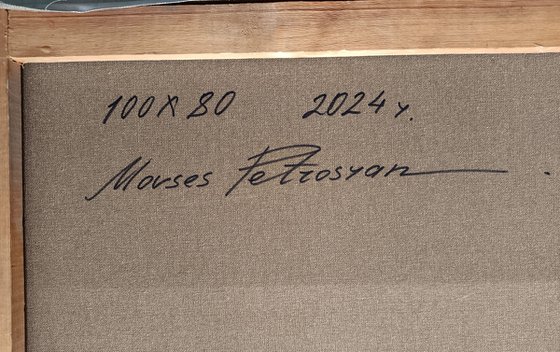 100X80 2024 y.
Movses Petrosyan